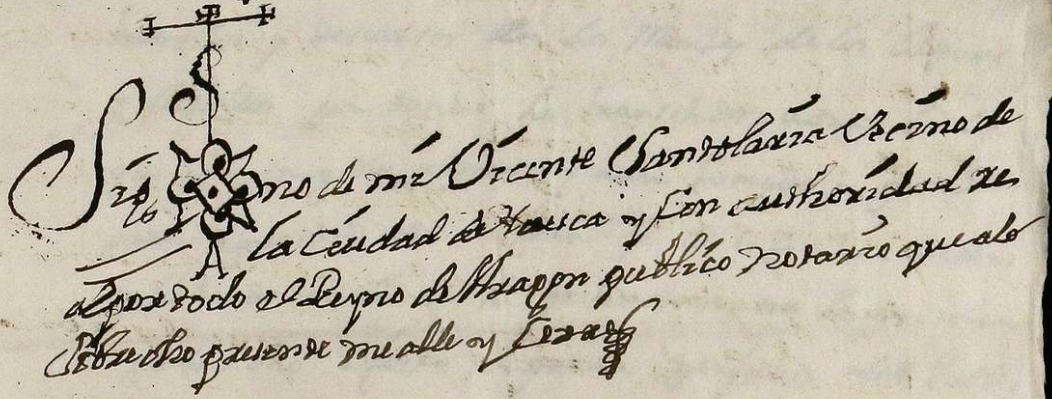 Sig no de mi Vicente Santolaria Vecino de
la Ciudad de Xaca y con authoridad re
al por todo el Reyno de Aragon publico Notario que a lo
sobre dho presente me alle y cerre